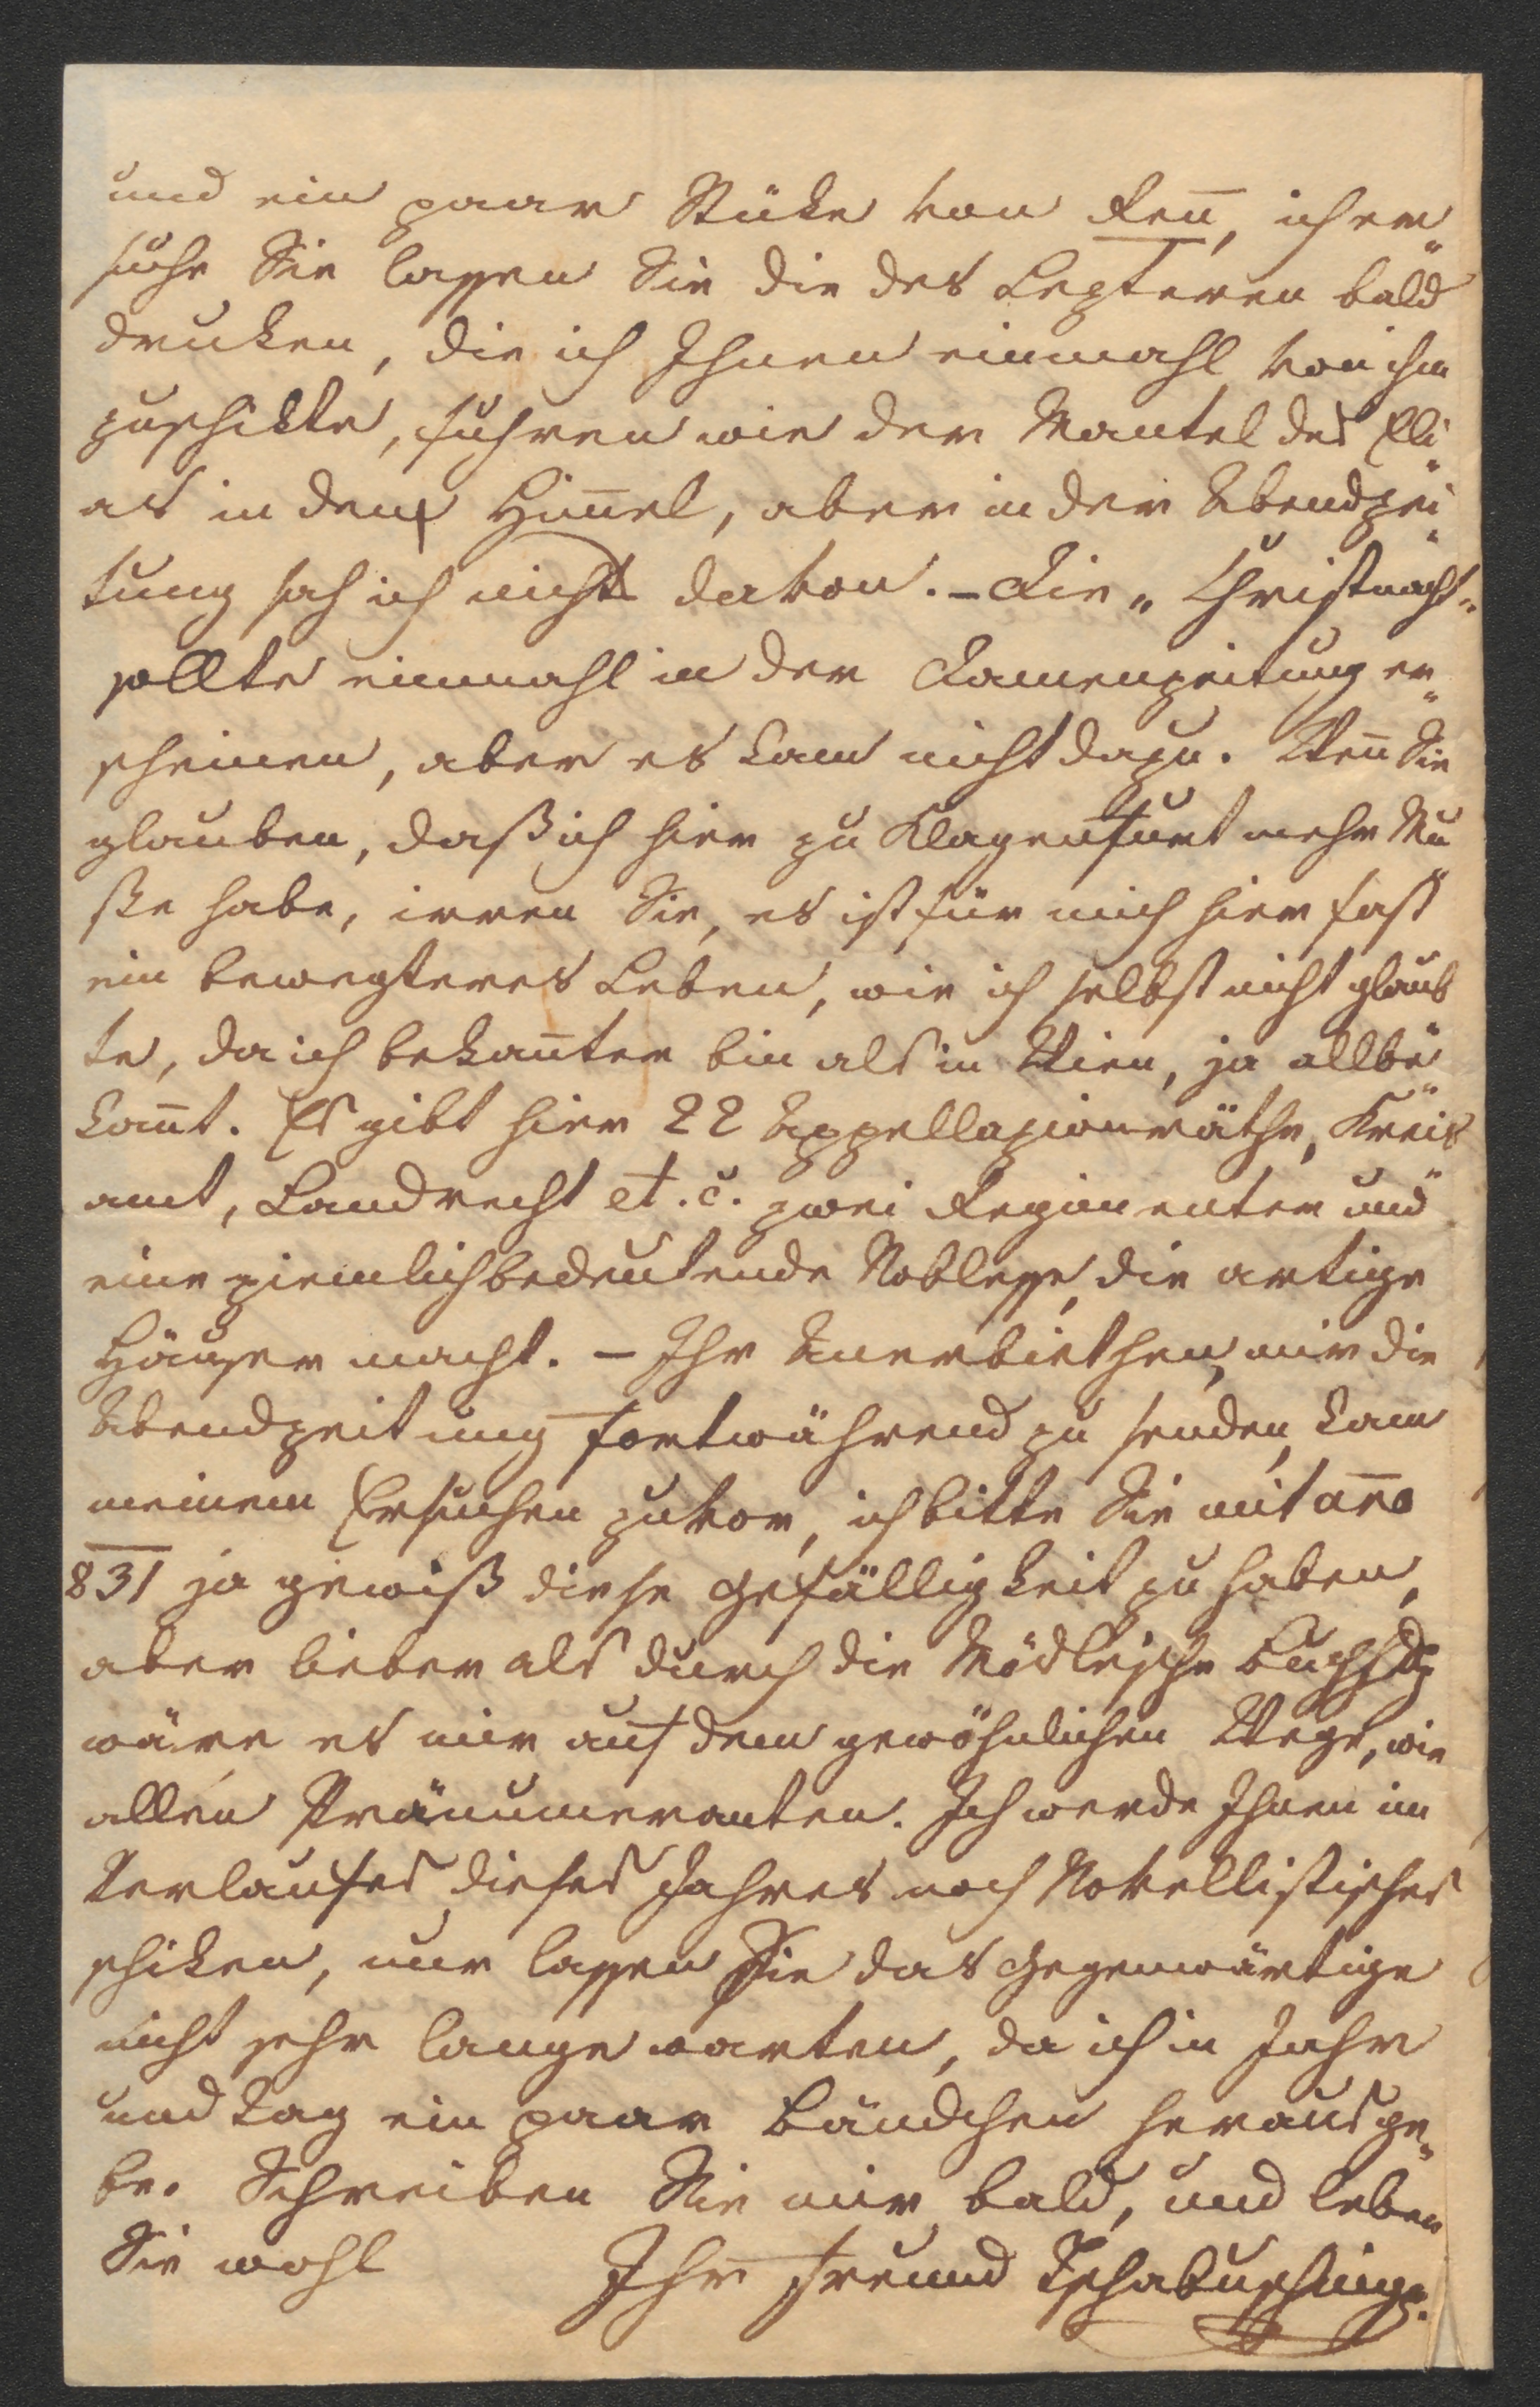 und ein paar Stüke von Ren̅, ich er„
suche Sie lassen Sie die des Lezteren bald
druken, die ich Ihnen einmahl von ihm
zuschikte, fuhren wie der Mantel des Eli„
as in den Him̅el, aber in der Abendzei„
tung sah ich nichts davon. – Die „Christnacht“
sollte einmahl in der Damenzeitung er„
scheinen, aber es kam nicht dazu. Wen̅ Sie
glauben, daß ich hier zu Klagenfurt mehr Mu„
ße habe, irren Sie, es ist für mich hier fast
ein bewegteres Leben, wie ich selbst nicht glaub„
te, da ich bekan̅ter bin als in Wien, ja allbe„
kan̅t. Es gibt hier 22 Appellazionsräthe, Kreis„
amt, Landrecht et. c. zwei Regimenter und
eine ziemlich bedeutende Noblesse, die artige
Häuser macht. – Ihr Anerbiethen, mir die
Abendzeitung fortwährend zu senden, kam
meinem Ersuchen zuvor, ich bitte Sie mit an̅o
831 ja gewiß diese Gefälligkeit zu haben,
aber lieber als durch die Mödlische Buchhdg
wäre es mir auf dem gewöhnlichen Wege, wie
allen Pränumeranten. Ich werde Ihnen im
Verlaufes dieses Jahres noch Novellistisches
schiken, nur lassen Sie das Gegenwärtige
nicht sehr lange warten, da ich in Jahr
und Tag ein paar Bändchen herausge„
be. Schreiben Sie mir bald, und leben
Sie wohl Ihr Freund Tschabuschnigg.